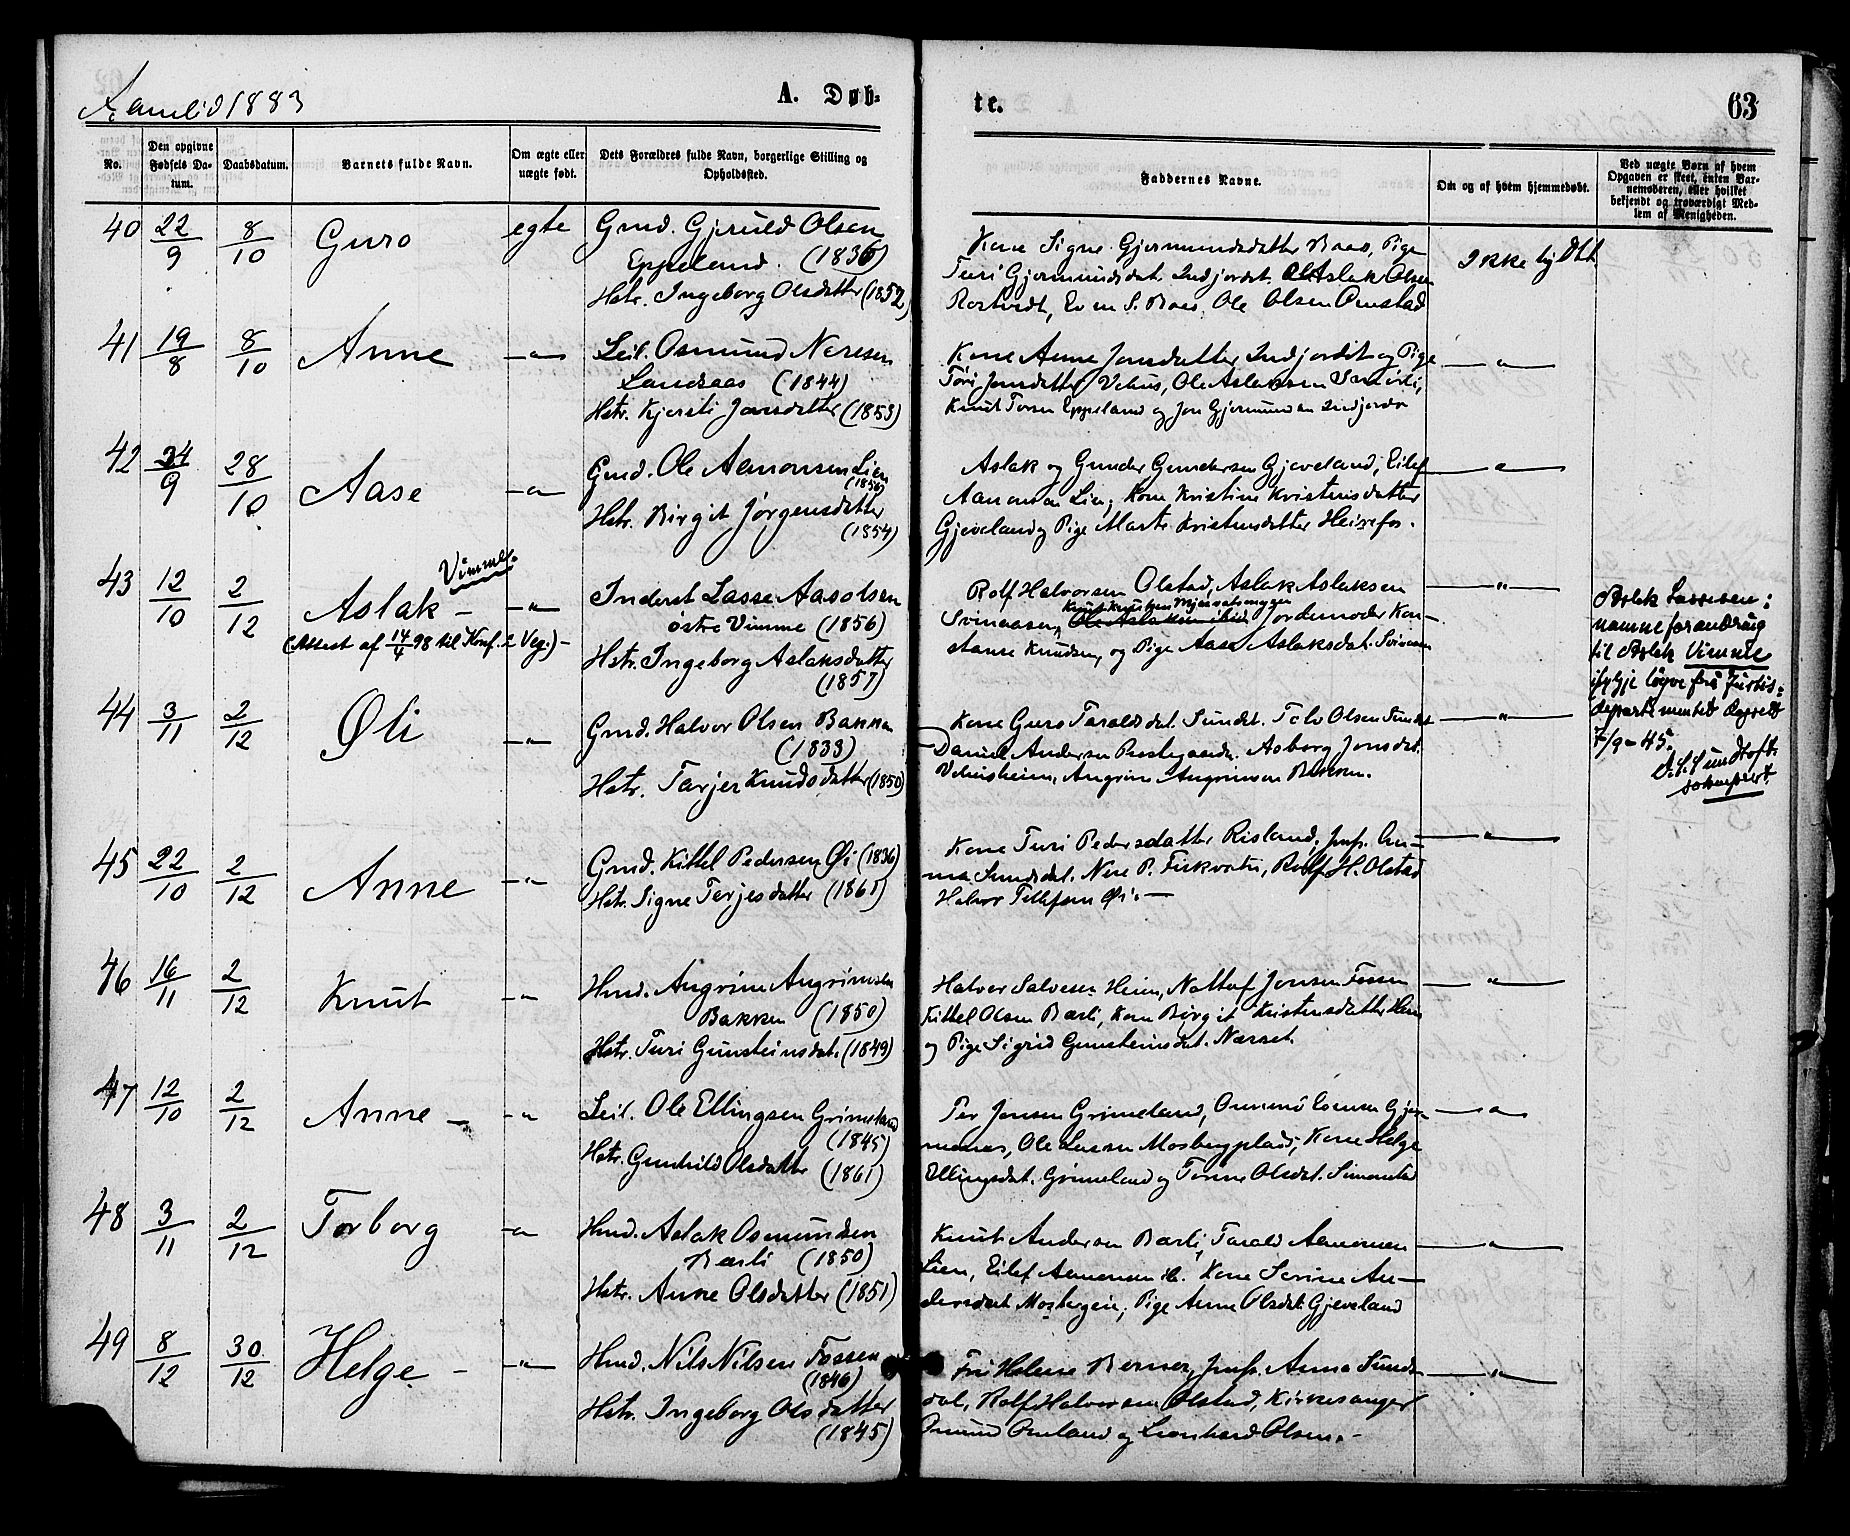 Aamlid 1883
A. Døb-
te.
63
No.
Den opgivne Fødsels Da-
tum.
Daabsdatum.
Barnets fulde Navn.
Om ægte eller uægte født.
Dets Forældres fulde Navn, borgerlige Stilling og
Opholdssted.
Faddernes Navne.
Om og af hvem hjemmedøbt.
Ved uægte Børn af hvem
Opgaven er skeet, enten Bar-
nemoderen, eller hvilket
bekjendt og troværdigt Med-
lem af Menigheden.
40 22/9 8/10 Guro egte Gmd. Gjeruld Olsen
Eppeland. (1836)
Hstr. Ingeborg Olsdatter (1852)
Kone Signe Gjermundsdatter Baas, Pige
Turi Gjermundsdat. Indjordet. Aslak Olsen
Rostvedt, Even S. Baas, Ole Olsen
Ikke hj Dbt
41 19/8 8/10 Anne —"— Leil. Osmund Neresen
Landsaas (1844)
Hstr. Kjersti Jonsdatter (1853)
Kone Anne Jonsdatter Indjordet og Pige
Jonsdatter Vehus, Ole Aslaksen
Knut Eppeland og Jon
—"—
42 24/9 28/10 Aase —"— Gmd. Ole Aamonsen Lien
Hstr. Birgit Jørgensdatter
(1854)
Aslak og Gunder Gundersen Gjeveland, Eilef
Aamonsen Lien, Kone Kristine Kristensdatter
Gjeveland og Pige Marte Kristensdatter Heirefos.
—"—
43 12/10 2/12 Aslak — Vimme. —"—
(Attest af 14/4 98 til Konf. i Veg.) —
Inderst Lasse Aasolsen
østre Vimme (1856)
Hstr. Ingeborg Aslaksdatter
(1857)
Rolf Halvorsen Olstad, Aslak Aslaksen
Svinaasen, Knut Knutsen Jordemoder Kon-
stanse Knudsen, og Pige Aase Aslaksdat. Svinaasen
—"—
Aslak Lassesen:
namneforandring
til Aslak Vimme
ifylgje løyve frå Justis-
departementet
7/9-45.
sokneprest.
44 3/11 2/12 Øli —"— Gmd. Halvor Olsen Bakken
(1833)
Hstr. Tarjer Knudsdatter (1850)
Kone Guro Taraldsdat. Sundet. Olsen Sundet
Daniel Andersen Asborg Jonsdat.
Vehusheien, Angrim Angrimsen Bakken.
—"—
45 22/10 2/12 Anne —"— Gmd. Kittel Pedersen Øi (1836)
Hstr. Signe Terjesdatter (1861)
Kone Turi Pedersdatter Risland, Jmfr. An-
na Sundsdal. Nere P. Rolf H. Olstad
Halvor Tellefsen Øi. —
—"—
46 16/11 2/12 Knut —"— Hmd. Angrim Angrimsen
Bakken (1850)
Hstr. Turi Gunsteinsdat. (1849)
Halvor Salvesen Heim, Jonsen Fossen
Kittel Olsen Bærli, Kone Birgit Kristensdatter Heim
og Pige Sigrid Gunsteinsdat. Næsset.
—"—
47 12/10 2/12 Anne — —"— Leil. Ole Ellingsen Grimeland
(1845)
Hstr. Gunhild Olsdatter (1861)
Per Jonsen Grimeland, Osmund
Ole Larsen Mosbergplads, Kone Helge
Ellingsdat. Grimeland og Torine Olsdat. Simonstad
—"—
48 3/11 2/12 Torborg —"— Hmd. Aslak Osmundsen
Bærli (1850)
Hstr. Anne Olsdatter (1851)
Knut Andersen Bærli, Tarald Aamonsen
Lien, Eilef Aamonsen ib. Kone Serine An-
dersdat Mosbergeie, Pige Anne Olsdat. Gjeveland
—"—
49 8/12 30/12 Helge — —"— Hmd. Nils Nilsen Fossen
(1846)
Hstr. Ingeborg Olsdatter
(1845)
Fru Helene Berner, Jmfr. Anna Sunds-
dal, Rolf Halvorsen Olstad, Kirkesanger
Omund Omland og Leonhard Olsen. —
—"—